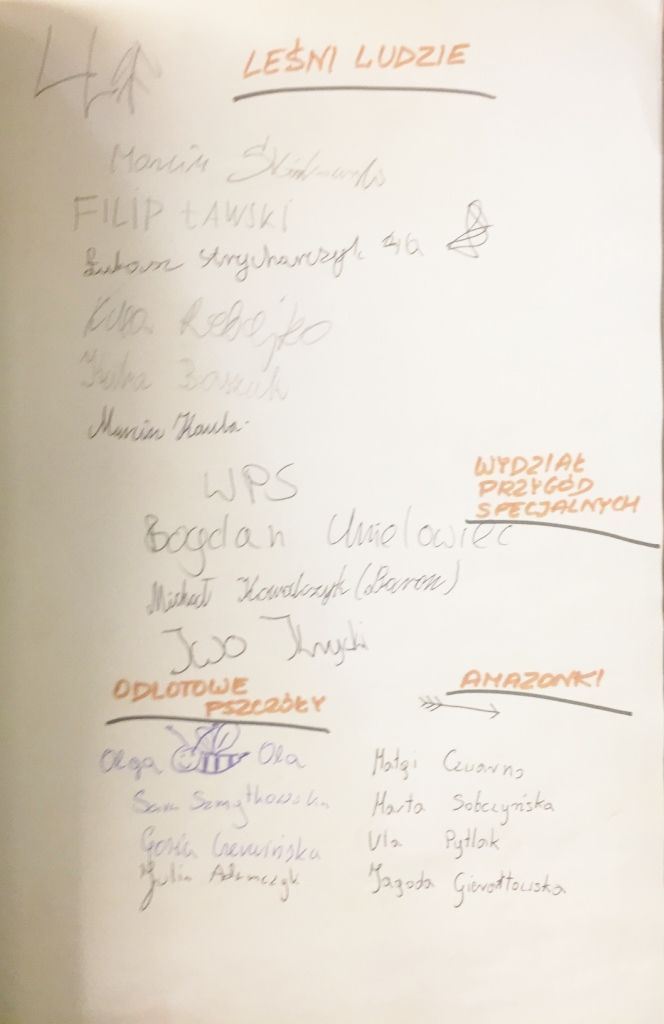 4
LEŚNI LUDZIE
Marcin
FILIP ŁAWSKI
Łukasz Strycharczyk
Kuba Rebejko
Kuba
Marcin
WPS
WYDZIAŁ
PRZYGÓD
SPECJALNYCH
Bogdan Chielowiec
Michał Kowalczyk (Baron)
Iwo
ODLOTOWE
PSZCZÓŁY
Olga Ola
Sara Szmytkowska
Gosia
Julia Adamczyk
AMAZONKI
Małgi
Marta Sobczyńska
Ula Pytlak
Jagoda Gierałtowska